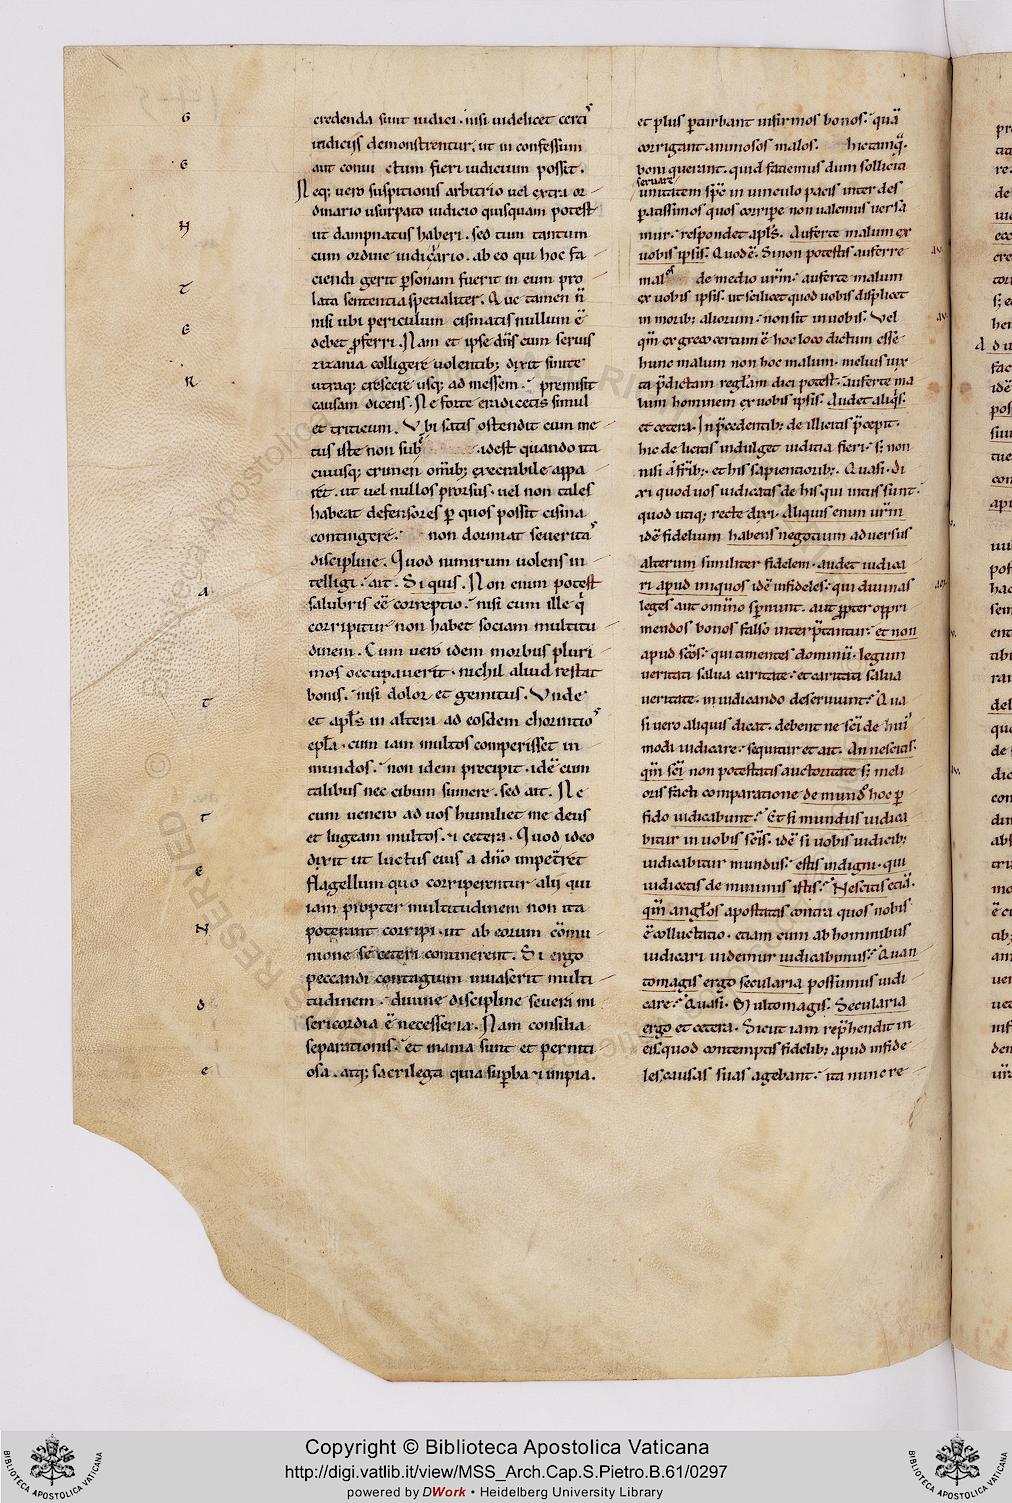 credenda sunt iudici. nisi uidelicet certis
indiciis demonstrentur. ut in confessum
aut conui ctum fieri iudicium possit.
Neq; uero suspitionis arbitrio uel extra or
dinario usurpato iudicio quisquam potest
ut dampnatus haberi. sed tum tantum
cum ordine iudiciario. ab eo qui hoc fa
ciendi gerit psonam fuerit in eum pro
lata sententia specialiter. Que tamen n̄
nisi ubi periculum cismatis nullum ē
debet pferri. Nam et ipse dn̄s cum seruis
zizania colligere uolentib; dixit sinite
utraq; crescere usq; ad messem. premisit
causam dicens. Ne forte eradicetis simul
et triticum. Vbi satis ostendit cum me
tus iste non sub idest quando ita
cuiusq; crimen om̄ib; execrabile appa
ret. ut uel nullos prorsus. uel non tales
habeat defensores p quos possit cisma
contingere. non dormiat seueritas
discipline. Quod nimirum uolens in
telligi. ait. Si quis. Non enim potest
salubris eē correptio. nisi cum ille q
corripitur non habet sociam multitu
dinem. Cum uero idem morbus pluri
mos occupauerit. nichil aliud restat
bonis. nisi dolor et gemitus. Vnde
et apl̄s in altera ad eosdem chorintios
epl̄a. cum iam multos comperisset in
mundos. non idem precipit. idē cum
talibus nec cibum sumere. sed ait. Ne
cum uenero ad uos humiliet me deus
et lugeam multos. & cetera. Quod ideo
dixit ut luctus eius a dn̄o impetret
flagellum quo corriperentur alii qui
iam propter multitudinem non ita
poterant corripi. ut ab eorum cōmu
nione se ceteri continerent. Si ergo
peccandi contagium inuaserit multi
tudinem. diuine discipline seuera mi
sericordia ē necesseria. Nam consilia
separationis. et inania sunt et perniti
osa. atq; sacrilega quia supba & impia.
et plus pturbant infirmos bonos. quā
corrigant animosos malos. hic tamq̄.
boni querant. quid faciemus dum solliciti
seruare
unitatem sp̄c in uinculo pacis inter des
peratissimos quos corripe non ualemus uersa
mur. respondet apl̄s. Auferte malum ex
uobis ipsis. Quod ē. Si non potestis auferre
malos de medio urm̄. auferte malum
ex uobis ipsis. ut scilicet quod uobis displicet
in morib; aliorum. non sit in uobis. Vel
qm̄ ex greco certum ē hoc loco dictum esse
hunc malum non hoc malum. melius iux
ta pdictam reglam dici potest. auferte ma
lum hominem ex uobis ipsis. Audet aliqs.
et cetera. In pcedentib; de illicitis pcepit.
hic de licitis indulget iuditia fieri. s; non
nisi a frib;. et his sapientiorib;. Quasi. di
xi quod uos iudicatis de his qui intus sunt.
quod utiq; recte dixi. Aliquis enim urm̄
idē fidelium habens negotium aduersus
alterum similiter fidelem. audet iudica
ri apud iniquos idē infideles. qui diuinas
leges aut omnino spnunt. aut ppter oppri
mendos bonos falso interptantur. et non
apud scōs. qui timentes dominū. legum
ueritati salua caritate. et caritati salua
ueritate. in iudicando deseruiunt. Qua
si uero aliquis dicat. debent ne sci de hui
modi iudicare. sequitur et ait. An nescitis.
qm̄ sci non potestatis auctoritate s; meli
oris facti comparatione de mundo hoc p
fido iudicabunt. Et si mundus iudica
bitur in uobis scis. idē si uobis iudicib;
iudicabitur mundus. estis indigni. qui
iudicetis de minimis istis. Nescitis etiā.
qm̄ anglos apostatas contra quos nobis
ē colluctatio. etiam cum ab hominibus
iudicari uidemur iudicabimus. Quan
tomagis ergo secularia possumus iudi
care. Quasi. Multomagis. Secularia
ergo et cetera. Sicut iam rephendit in
eis. quod contemptis fidelib; apud infide
les causas suas agebant. ita nunc re
G
E
N
T
E
R
A
T
T
E
N
D
E
Copyright © Biblioteca Apostolica Vaticana
http://digi.vatlib.it/view/MSS_Arch.Cap.S.Pietro.B.61/0297
powered by DWork • Heidelberg University Library
BIBLIOTECA APOSTOLICA VATICANA
BIBLIOTECA APOSTOLICA VATICANA